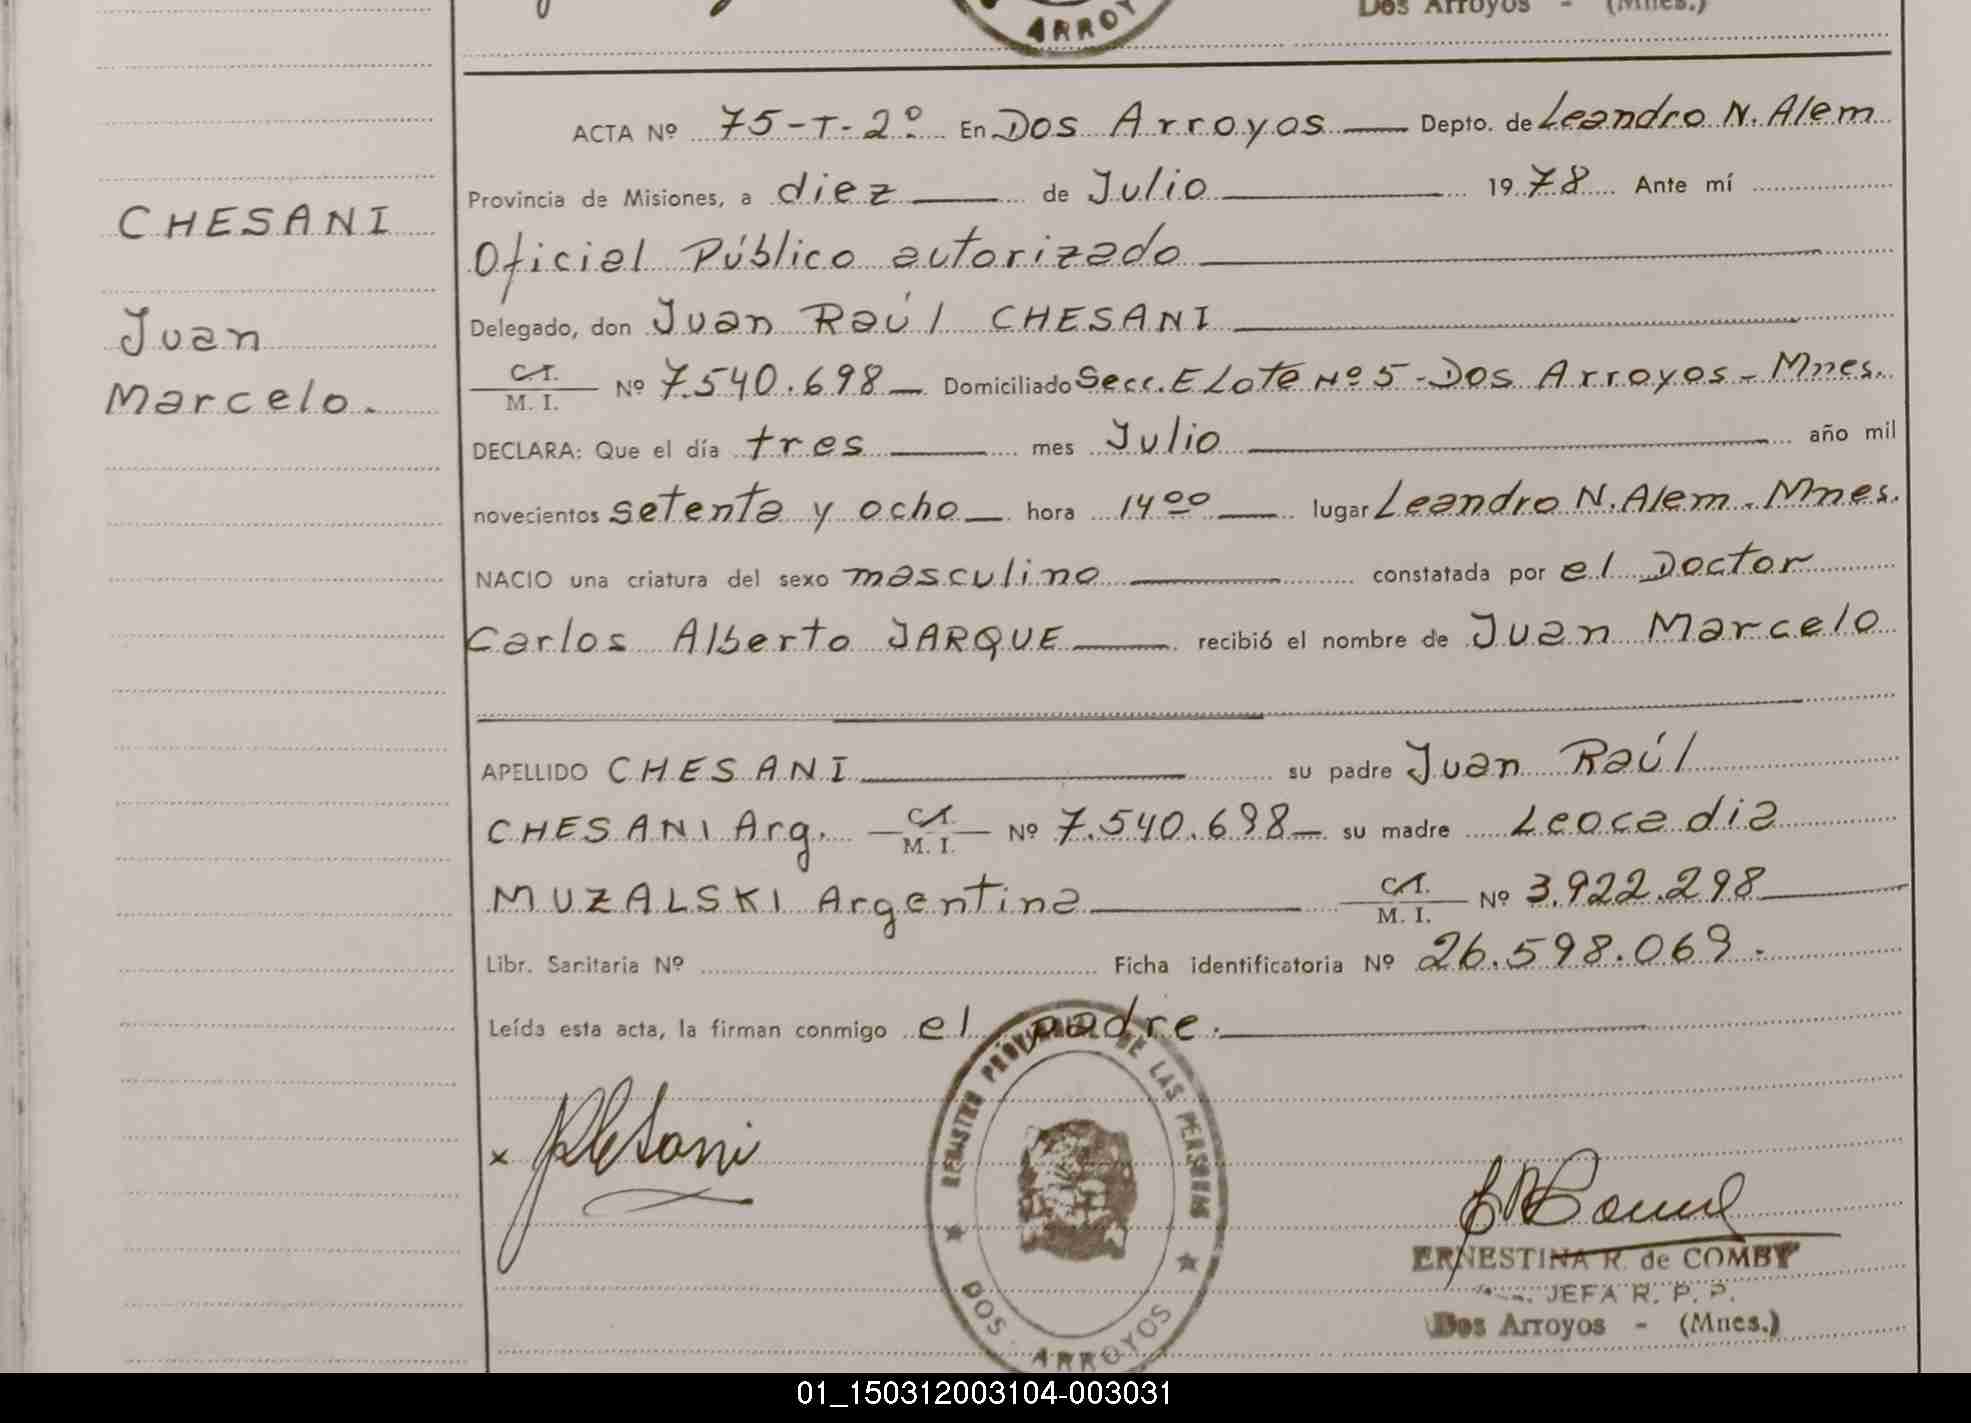 ARROY
Dos Arroyos - (Mnes.)
ACTA Nº 75-T-2º En Dos Arroyos Depto. de Leandro N. Alem
Provincia de Misiones, a diez de Julio 1978 Ante mí
CHESANI
Oficial Público autorizado
Juan
Delegado, don Juan Raúl CHESANI
Marcelo.
C.I.
M. I. Nº 7.540.698 Domiciliado Secc. E Lote Nº 5 - Dos Arroyos - Mnes.
DECLARA: Que el día tres mes Julio año mil
novecientos setenta y ocho hora 14 00 lugar Leandro N. Alem - Mnes.
NACIO una criatura del sexo masculino constatada por el Doctor
Carlos Alberto JARQUE recibió el nombre de Juan Marcelo
APELLIDO CHESANI su padre Juan Raúl
CHESANI Arg. C.I. M. I. Nº 7.540.698 su madre Leocadia
MUZALSKI Argentina C.I. M. I. Nº 3.922.298
Libr. Sanitaria Nº Ficha identificatoria Nº 26.598.069.
Leída esta acta, la firman conmigo el padre.
REGISTRO PROVINCIAL DE LAS PERSONAS
DOS ARROYOS
x
ERNESTINA R. de COMBY
JEFA R. P. P.
Dos Arroyos - (Mnes.)
01_150312003104-003031